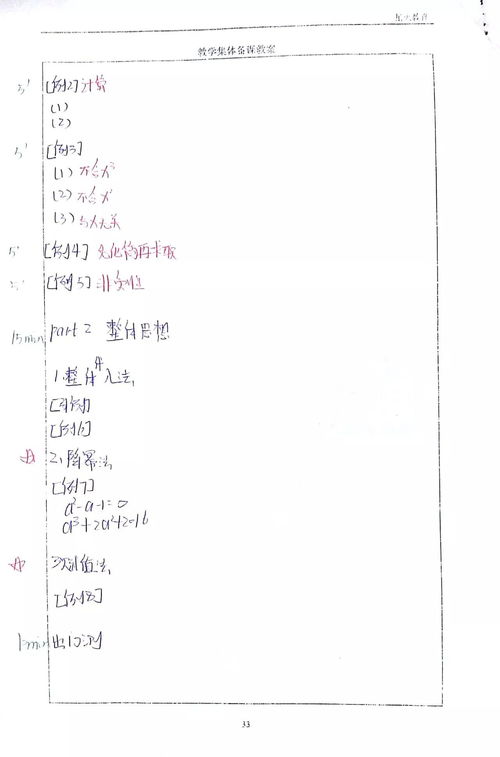 教学集体备课教案
5' [例2] 计算
(1)
(2)
5' [例3]
(1) 不含x³
(2) 不含x
(3) 与x无关
5' [例4] 先化简再求取
5' [例5] 非负性
15min part 2 整体思想
1.整体代入法,
[引例]
[例6]
2.降幂法,
[例7]
a²-a-1=0
a³+2a²+2016
3.赋值法,
[例8]
15min 出门测
33